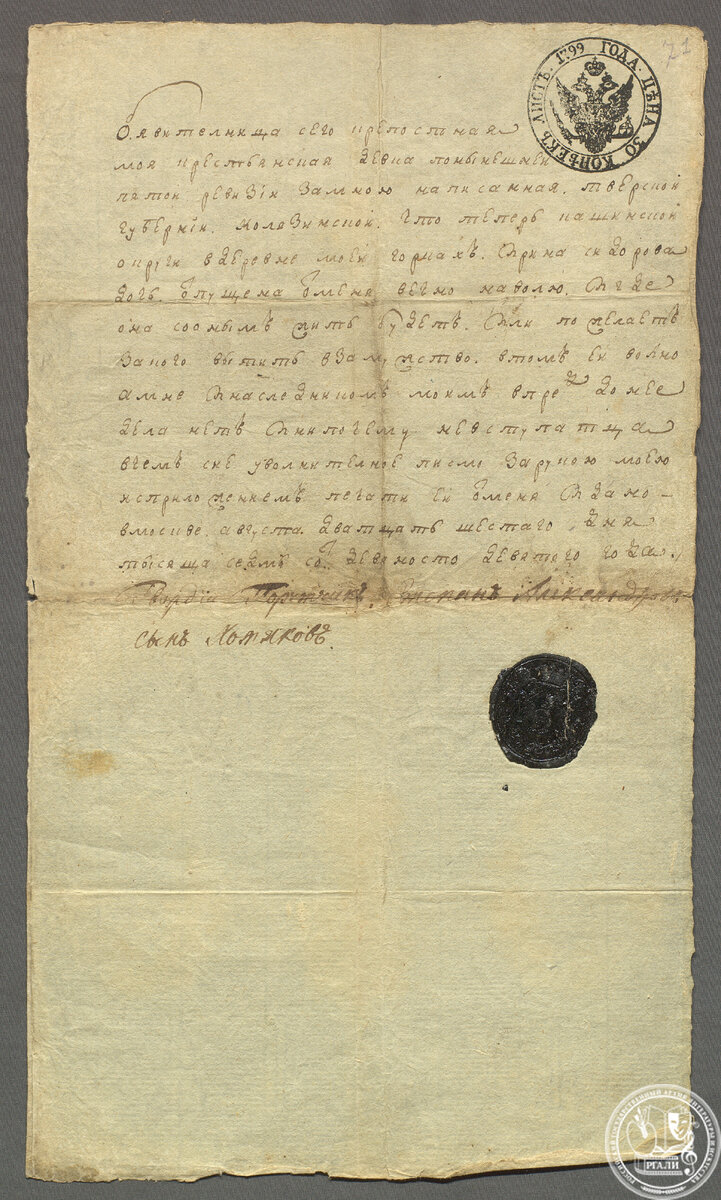 ЛИСТЪ. 1799 ГОДА. ЦѢНА 30 КОПѢЕКЪ
71
Обявителница сего крепостная
моя крестьянская девка понынешней
пятой ревизіи замною написанная. тверской
губерніи. колязинской. что теперь кашинской
округи вдеревне моей горкахъ. Ирина сидорова
дочь. отпущена отменя вечно наволю. и где
она соонымъ жить будетъ. или пожелаетъ
закого вытить взамужство. втомъ ей волно
амне и наследникомъ моимъ впредь донее
дела нетъ и нипочему невступатца
вчемъ сие уволнителное писмо зарукою моею
исприложениемъ печати ей отменя и дано
вмоскве. августа. дватцать шестаго дня
тысяща семь сотъ девяносто девятого года.
Гвардіи Порутчикъ. Степанъ Александровъ
сынъ Хомяковъ.
РОССИЙСКИЙ ГОСУДАРСТВЕННЫЙ АРХИВ ЛИТЕРАТУРЫ И ИСКУССТВА
РГАЛИ